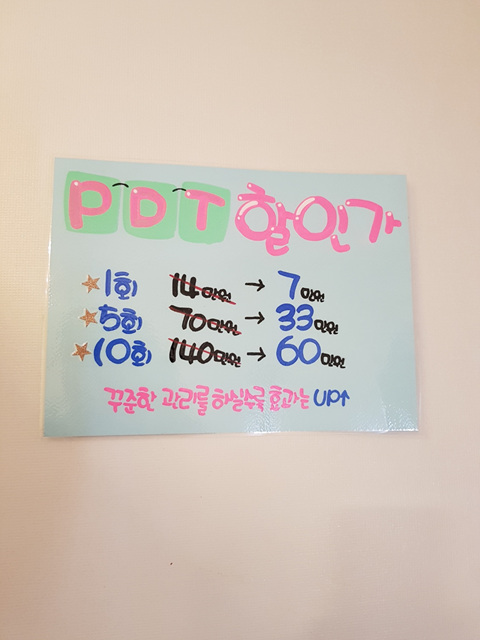 PDT 할인가
1회 14만원 → 7만원
5회 70만원 → 33만원
10회 140만원 → 60만원
꾸준한 관리를 하실수록 효과는 UP↑